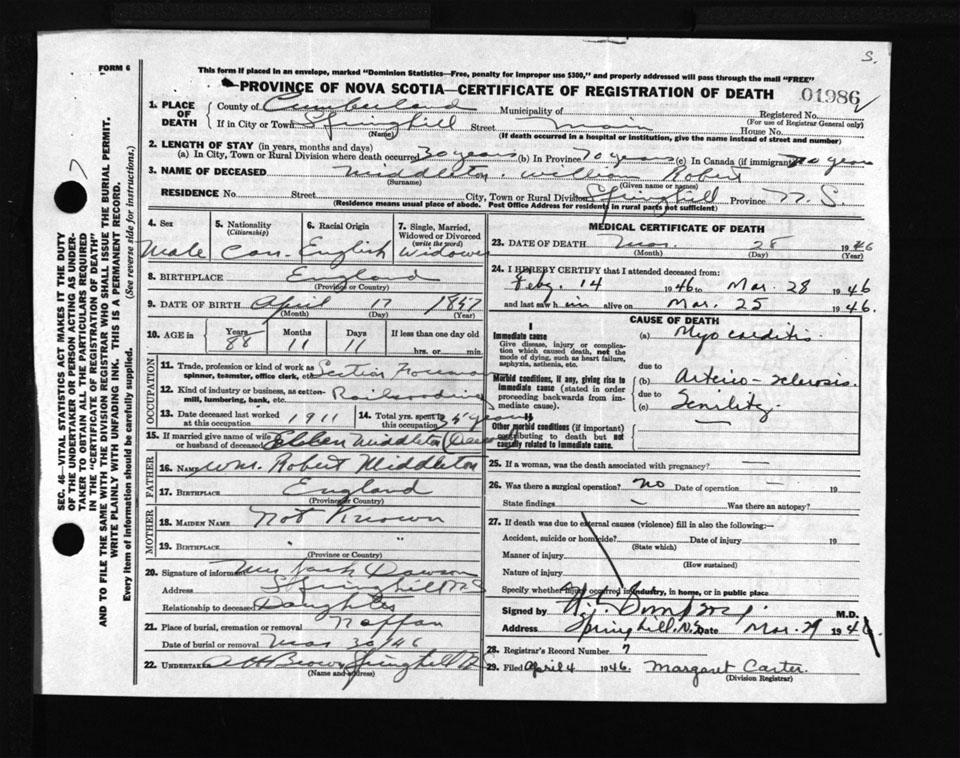 S.
FORM 6
This form if placed in an envelope, marked "Dominion Statistics—Free, penalty for improper use $300," and properly addressed will pass through the mail "FREE"
PROVINCE OF NOVA SCOTIA—CERTIFICATE OF REGISTRATION OF DEATH 01986
1. PLACE OF DEATH
County of Cumberland Municipality of Registered No.
(For use of Registrar General only)
If in City or Town Springhill Street Main House No.
(Name) (If death occurred in a hospital or institution, give the name instead of street and number)
2. LENGTH OF STAY (in years, months and days)
(a) In City, Town or Rural Division where death occurred 30 years (b) In Province 70 years (c) In Canada (if immigrant) 70 years
3. NAME OF DECEASED Middleton. William Robert
(Surname) (Given name or names)
RESIDENCE No. Street City, Town or Rural Division Springhill Province N.S.
(Residence means usual place of abode. Post Office Address for residents in rural parts not sufficient)
4. Sex Male
5. Nationality (Citizenship) Can.
6. Racial Origin English
7. Single, Married, Widowed or Divorced (write the word) Widower
8. BIRTHPLACE England
(Province or Country)
9. DATE OF BIRTH April 17 1857
(Month) (Day) (Year)
10. AGE in Years 88 Months 11 Days 11 If less than one day old hrs. or min.
OCCUPATION
11. Trade, profession or kind of work as spinner, teamster, office clerk, etc. Section Foreman
12. Kind of industry or business, as cotton-mill, lumbering, bank, etc. Railroading
13. Date deceased last worked at this occupation 1911
14. Total yrs. spent in years
15. If married give name of wife or husband of deceased Middleton
FATHER
16. NAME Wm. Robert Middleton
17. BIRTHPLACE England
(Province or Country)
MOTHER
18. MAIDEN NAME Not Known
19. BIRTHPLACE " "
(Province or Country)
20. Signature of informant Mrs Jack Dawson
Address Springhill N.S
Relationship to deceased Daughter
21. Place of burial, cremation or removal Nappan
Date of burial or removal Mar 30/46
22. UNDERTAKER A H Brown Springhill NS
(Name and address)
MEDICAL CERTIFICATE OF DEATH
23. DATE OF DEATH Mar. 28 1946
(Month) (Day) (Year)
24. I HEREBY CERTIFY that I attended deceased from:
Feby. 14 1946 to Mar. 28 1946
and last saw him alive on Mar. 25 1946.
CAUSE OF DEATH
I
Immediate cause
Give disease, injury, or complication which caused death, not the mode of dying, such as heart failure, asphyxia, asthenia, etc.
(a) Myocarditis
due to
Morbid conditions, if any, giving rise to immediate cause (stated in order proceeding backwards from immediate cause).
(b) Arterio-sclerosis.
due to
(c) Senility
II
Other morbid conditions (if important) contributing to death but not causally related to immediate cause.
25. If a woman, was the death associated with pregnancy? —
26. Was there a surgical operation? No Date of operation — 19
State findings — Was there an autopsy?
27. If death was due to external causes (violence) fill in also the following:—
Accident, suicide or homicide? Date of injury 19
(State which)
Manner of injury
(How sustained)
Nature of injury
Specify whether injury occurred in industry, in home, or in public place
Signed by M.D.
Address Springhill, N.S. Date Mar. 29 1946
28. Registrar's Record Number 7
29. Filed April 4 1946. Margaret Carter.
(Division Registrar)
SEC. 46—VITAL STATISTICS ACT MAKES IT THE DUTY
OF THE UNDERTAKER OR PERSON ACTING AS UNDER-
TAKER TO OBTAIN ALL THE PARTICULARS REQUIRED
IN THE "CERTIFICATE OF REGISTRATION OF DEATH"
AND TO FILE THE SAME WITH THE DIVISION REGISTRAR WHO SHALL ISSUE THE BURIAL PERMIT.
WRITE PLAINLY WITH UNFADING INK. THIS IS A PERMANENT RECORD.
Every item of information should be carefully supplied. (See reverse side for instructions.)